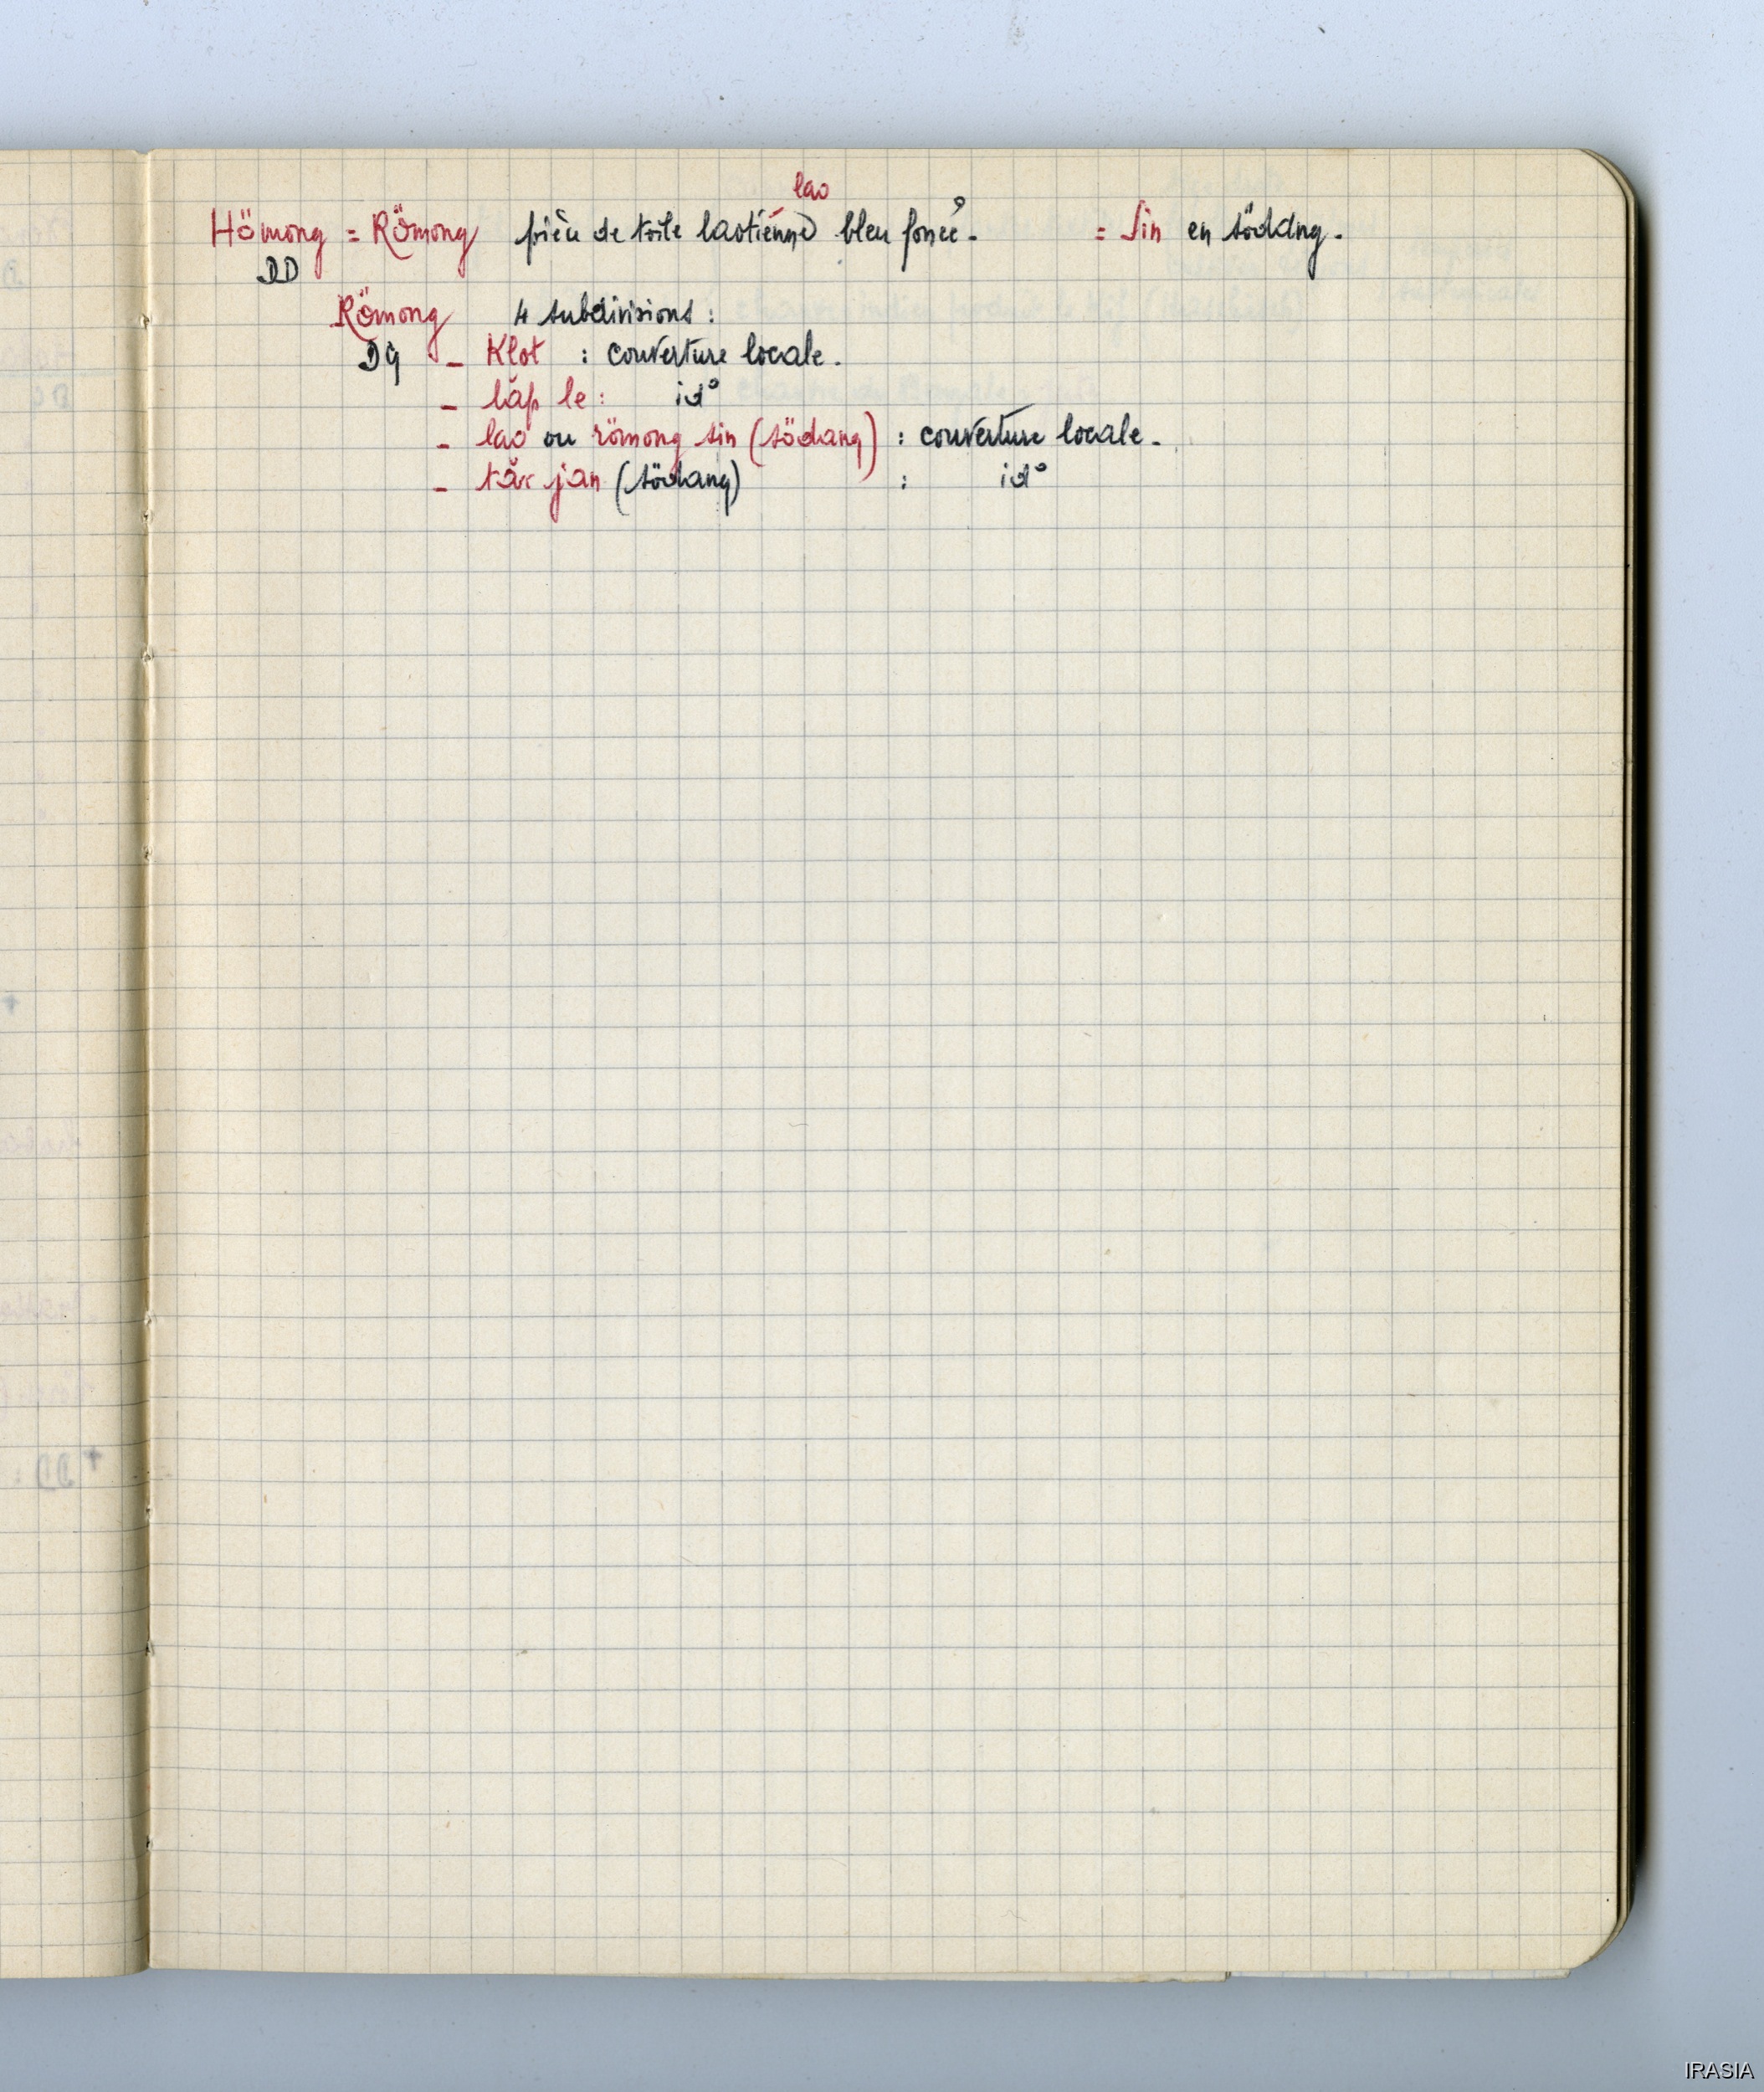 lao
Hömong = Römong pièce de toile laotienne bleu foncé. = Sin en södang.
DD
Römong 4 subdivisions :
DG - Klot : couverture locale.
- lăp le : id°
- lao ou römong sin (södang) : couverture locale.
- tăk jan (södang) : id°
IRASIA